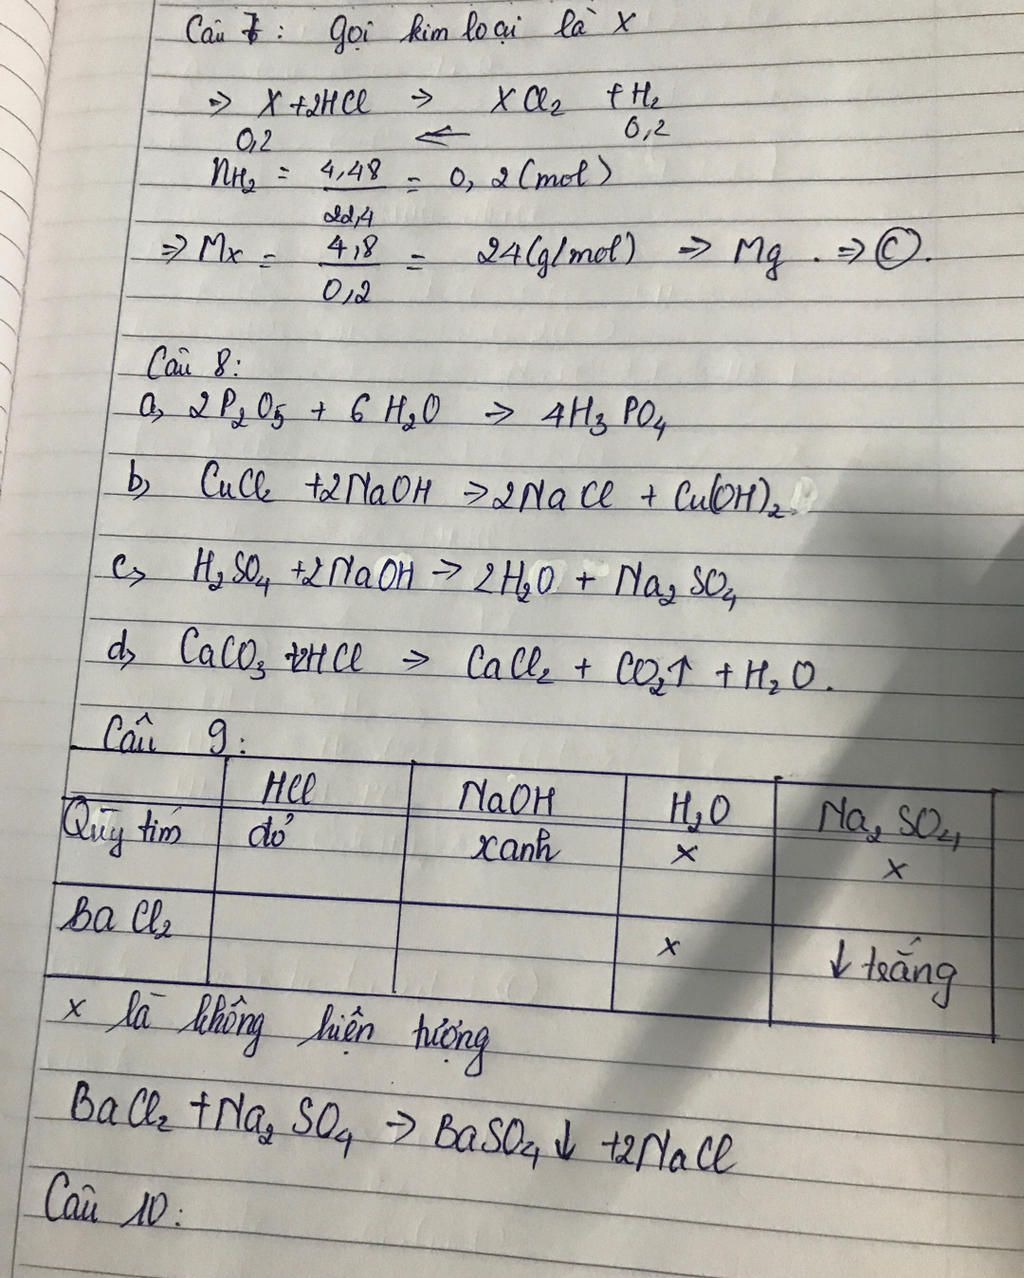 Câu 7: Gọi kim loại là X
=> X + 2HCl → XCl₂ + H₂
0,2 ← 0,2
nH₂ = 4,48/22,4 = 0,2 (mol)
=> Mx = 4,8/0,2 = 24 (g/mol) => Mg. => Ⓒ.
Câu 8:
a, 2P₂O₅ + 6H₂O → 4H₃PO₄
b, CuCl₂ + 2NaOH → 2NaCl + Cu(OH)₂
c, H₂SO₄ + 2NaOH → 2H₂O + Na₂SO₄
d, CaCO₃ + 2HCl → CaCl₂ + CO₂↑ + H₂O.
Câu 9:
HCl NaOH H₂O Na₂SO₄
Qùy tím đỏ xanh x x
BaCl₂ x ↓ trắng
x là không hiện tượng
BaCl₂ + Na₂SO₄ → BaSO₄↓ + 2NaCl
Câu 10: